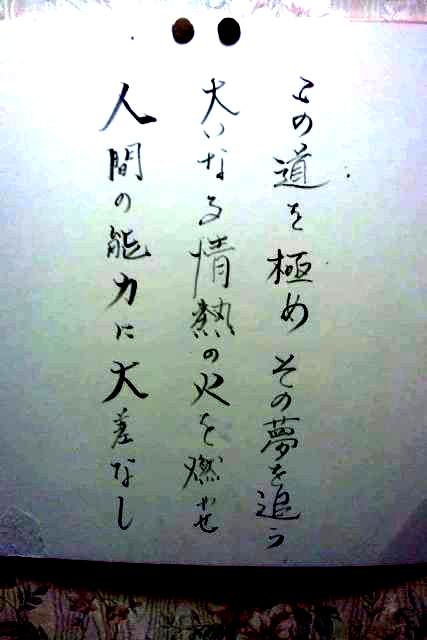 この道を極め その夢を追う
大いなる情熱の火を燃やせ
人間の能力に大差なし